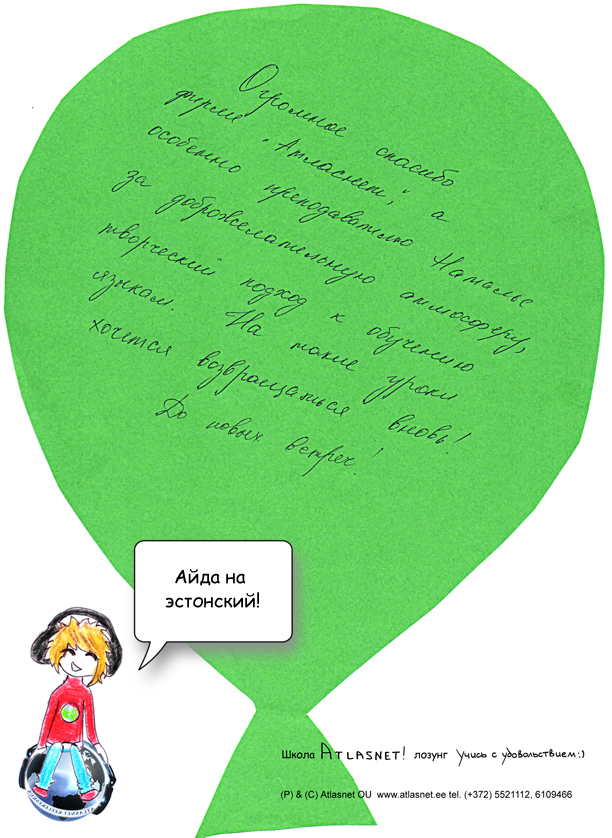 Огромное спасибо
фирме "Атласнет", а
особенно преподавателю Наталье
за доброжелательную атмосферу,
творческий подход к обучению
языкам. На такие уроки
хочется возвращаться вновь!
До новых встреч!
Айда на
эстонский!
Школа ATLASNET! лозунг Учись с удовольствием:)
(P) & (C) Atlasnet OU www.atlasnet.ee tel. (+372) 5521112, 6109466